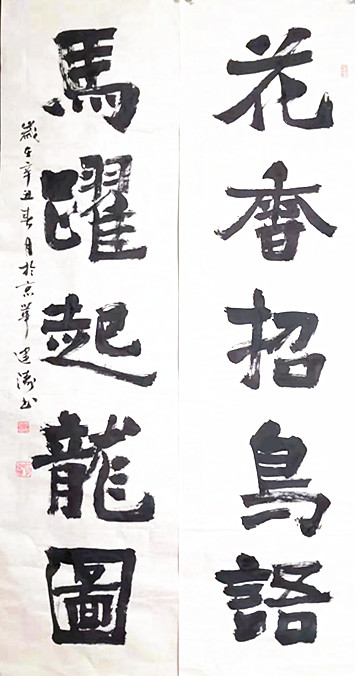 花香招鳥語
馬躍起龍圖
歲在辛丑春月於京華建濤书